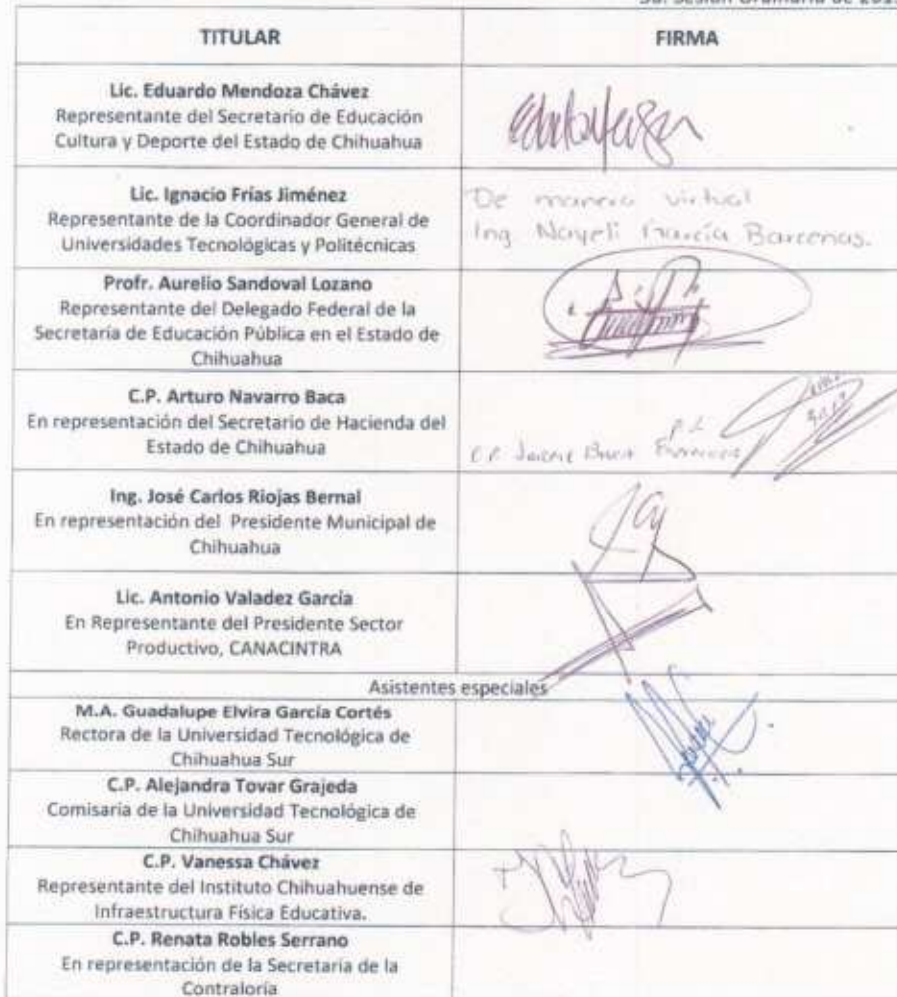 TITULAR
FIRMA
Lic. Eduardo Mendoza Chávez
Representante del Secretario de Educación
Cultura y Deporte del Estado de Chihuahua
Lic. Ignacio Frías Jiménez
Representante de la Coordinador General de
Universidades Tecnológicas y Politécnicas
De manera virtual
Ing Nayeli García Barcenas.
Profr. Aurelio Sandoval Lozano
Representante del Delegado Federal de la
Secretaría de Educación Pública en el Estado de
Chihuahua
C.P. Arturo Navarro Baca
En representación del Secretario de Hacienda del
Estado de Chihuahua
C.P.
Ing. José Carlos Riojas Bernal
En representación del Presidente Municipal de
Chihuahua
Lic. Antonio Valadez García
En Representante del Presidente Sector
Productivo, CANACINTRA
Asistentes especiales
M.A. Guadalupe Elvira García Cortés
Rectora de la Universidad Tecnológica de
Chihuahua Sur
C.P. Alejandra Tovar Grajeda
Comisaria de la Universidad Tecnológica de
Chihuahua Sur
C.P. Vanessa Chávez
Representante del Instituto Chihuahuense de
Infraestructura Física Educativa.
C.P. Renata Robles Serrano
En representación de la Secretaría de la
Contraloría